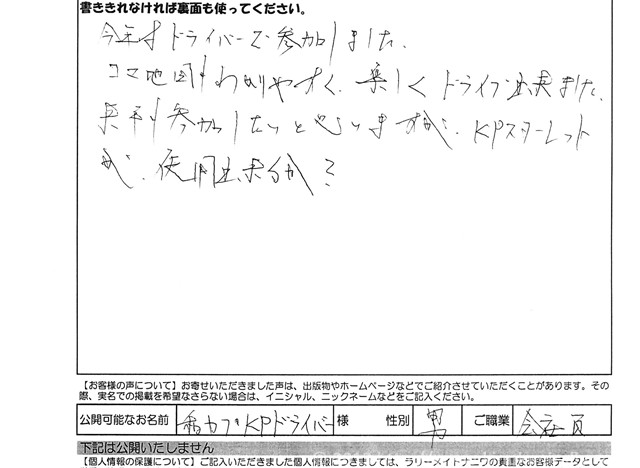 書ききれなければ裏面も使ってください。
今年もドライバーで参加しました。
コマ地図もわかりやすく、楽しくドライブ出来ました。
来年も参加したいと思いますが、KPスターレット
が、使用出来るか?
【お客様の声について】お寄せいただきました声は、出版物やホームページなどでご紹介させていただくことがあります。その
際、実名での掲載を希望なさらない場合は、イニシャル、ニックネームなどをご記入ください。
公開可能なお名前 和カブKPドライバー 様 性別 男 ご職業 会社員
下記は公開いたしません
【個人情報の保護について】ご記入いただきました個人情報につきましては、ラリーメイトナニワの貴重なお客様データとして